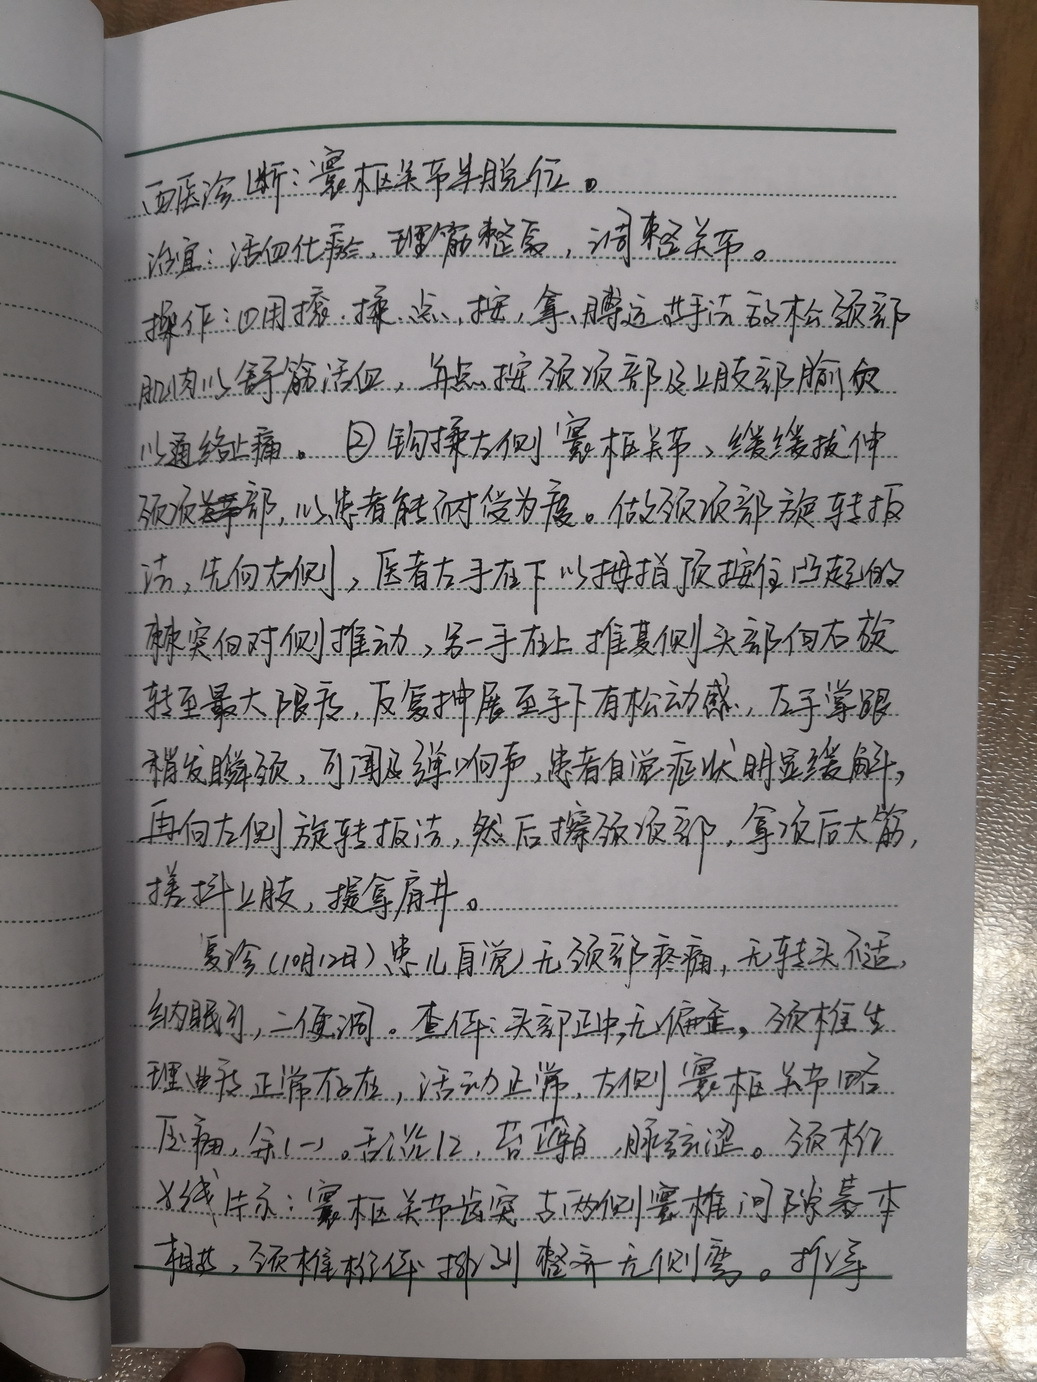 西医诊断：寰枢关节半脱位。
治宜：活血化瘀，理筋整复，调整关节。
操作：①用㨰、揉、点、按、拿、膊运
手法放松颈部
肌肉以舒筋活血，并点按颈项部及上肢部腧穴
以通络止痛。②钩揉左侧寰枢关节，缓缓拔伸
颈项部，以患者能耐受为度。做颈项部旋转扳
法，先向右侧，医者左手在下以拇指顶按住凸起的
棘突向对侧推动，另一手在上推其侧头部向右旋
转至最大限度，反复抻展至手下有松动感，左手掌跟
稍发瞬颈，可闻及弹响声，患者自觉症状明显缓解，
再向左侧旋转扳法，然后擦颈项部，拿项后大筋，
搓抖上肢，提拿肩井。
复诊(10月12日)患儿自觉无颈部疼痛，无转头不适，
纳眠可，二便调。查体：头部正中，无偏歪，颈椎生
理曲度正常存在，活动正常，左侧寰枢关节略
压痛，余(一)。舌淡红，苔薄白，脉弦涩。颈椎
X线片示：寰枢关节齿突与两侧寰椎间隙基本
相等，颈椎椎体排列整齐无侧弯。推导